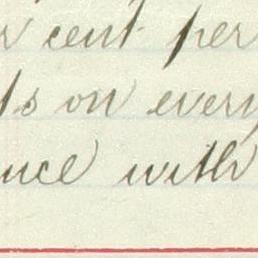 cent per
on every
with